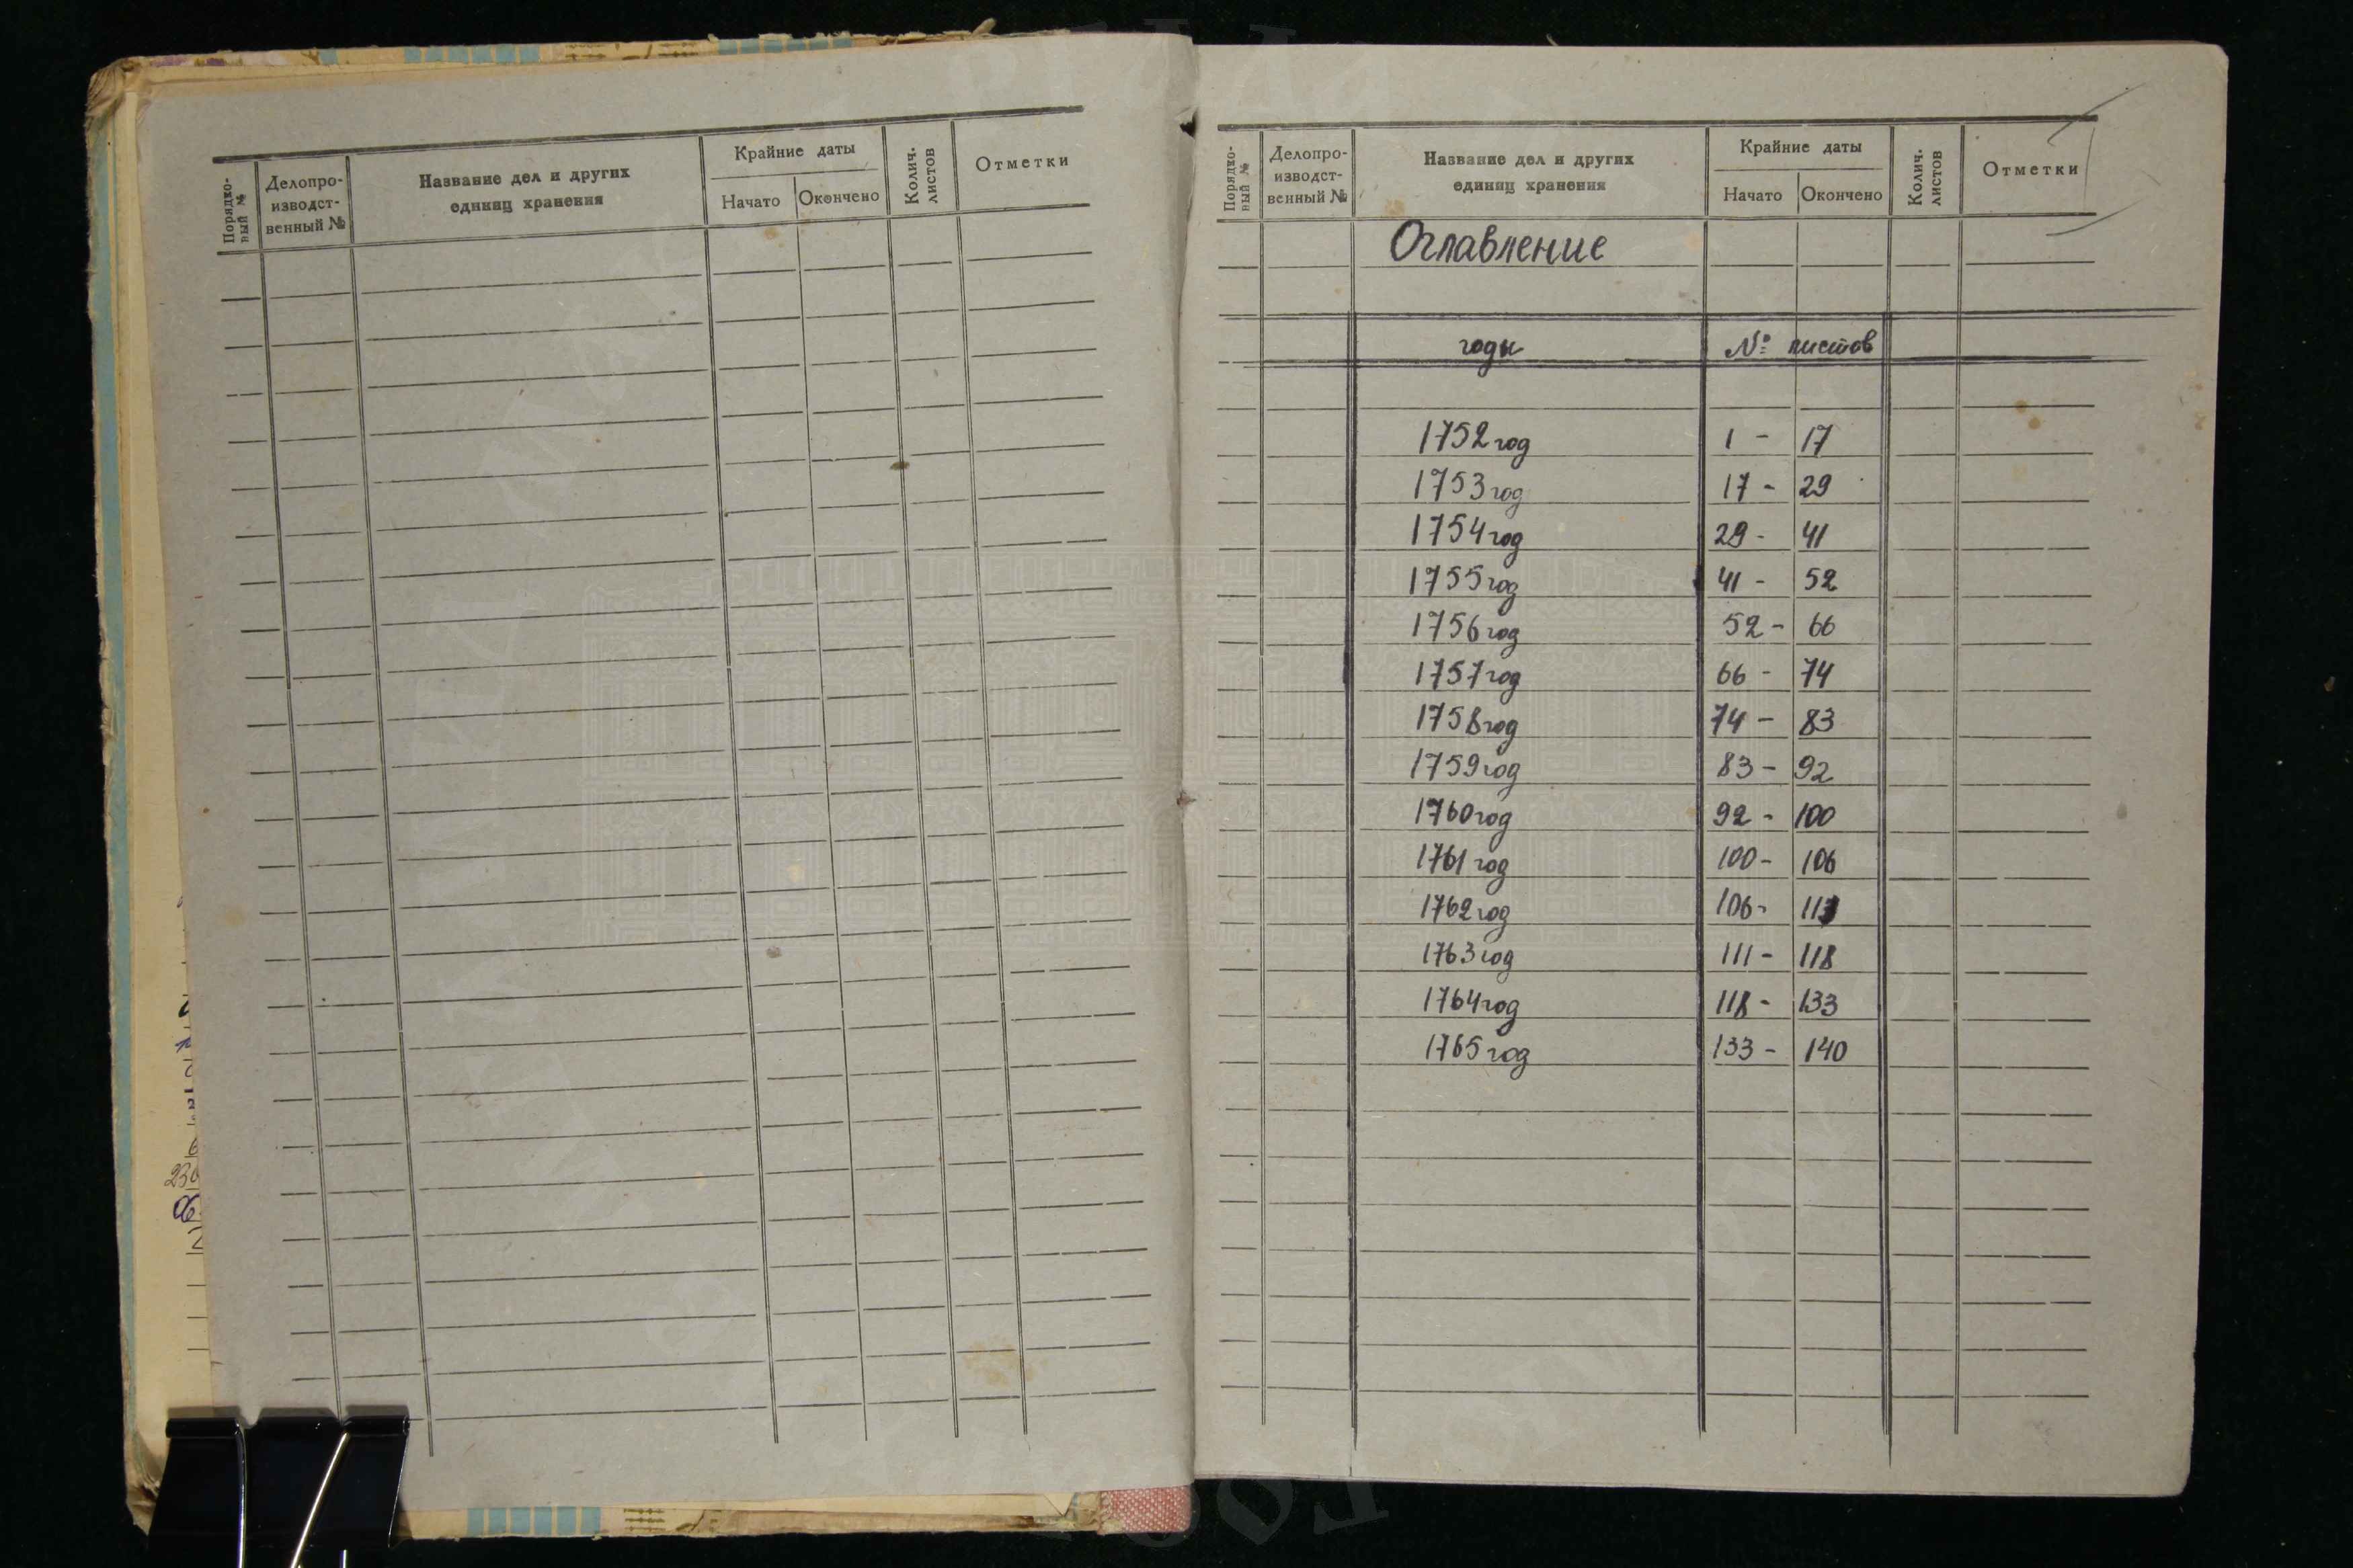 Порядко-
вый №
Делопро-
изводст-
венный №
Название дел и других
единиц хранения
Крайние даты
Начато Окончено
Колич.
листов
Отметки
Порядко-
вый №
Делопро-
изводст-
венный №
Название дел и других
единиц хранения
Крайние даты
Начато Окончено
Колич.
листов
Отметки
Оглавление
годы № листов
1752 год 1 - 17
1753 год 17 - 29
1754 год 29 - 41
1755 год 41 - 52
1756 год 52 - 66
1757 год 66 - 74
1758 год 74 - 83
1759 год 83 - 92
1760 год 92 - 100
1761 год 100 - 106
1762 год 106 -
1763 год 111 - 118
1764 год 118 - 133
1765 год 133 - 140